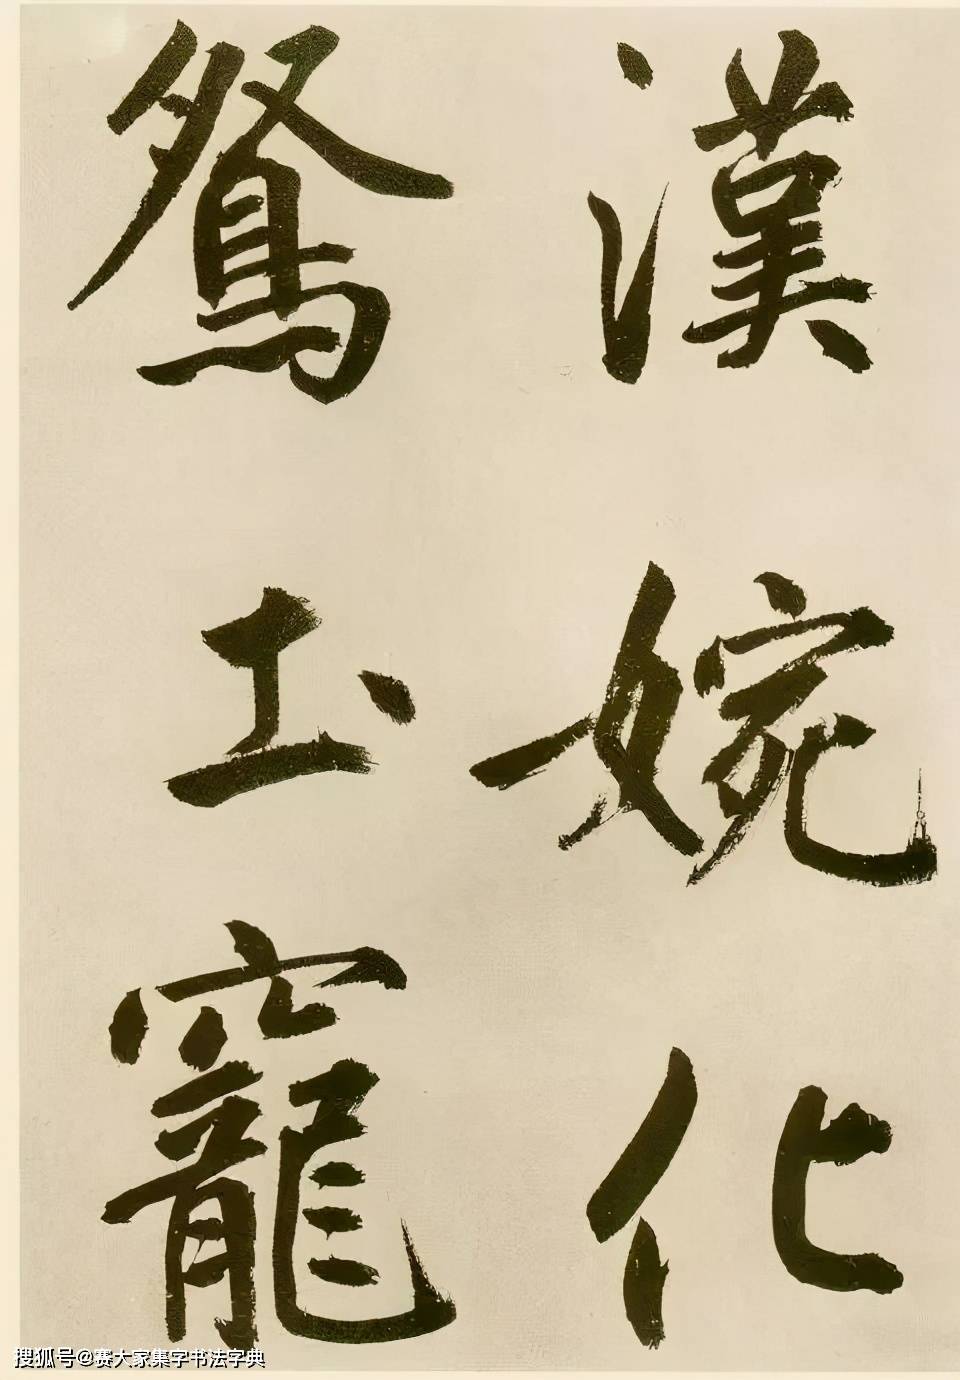 漢婉化
鴛圡竉
搜狐号@赛大家集字书法字典